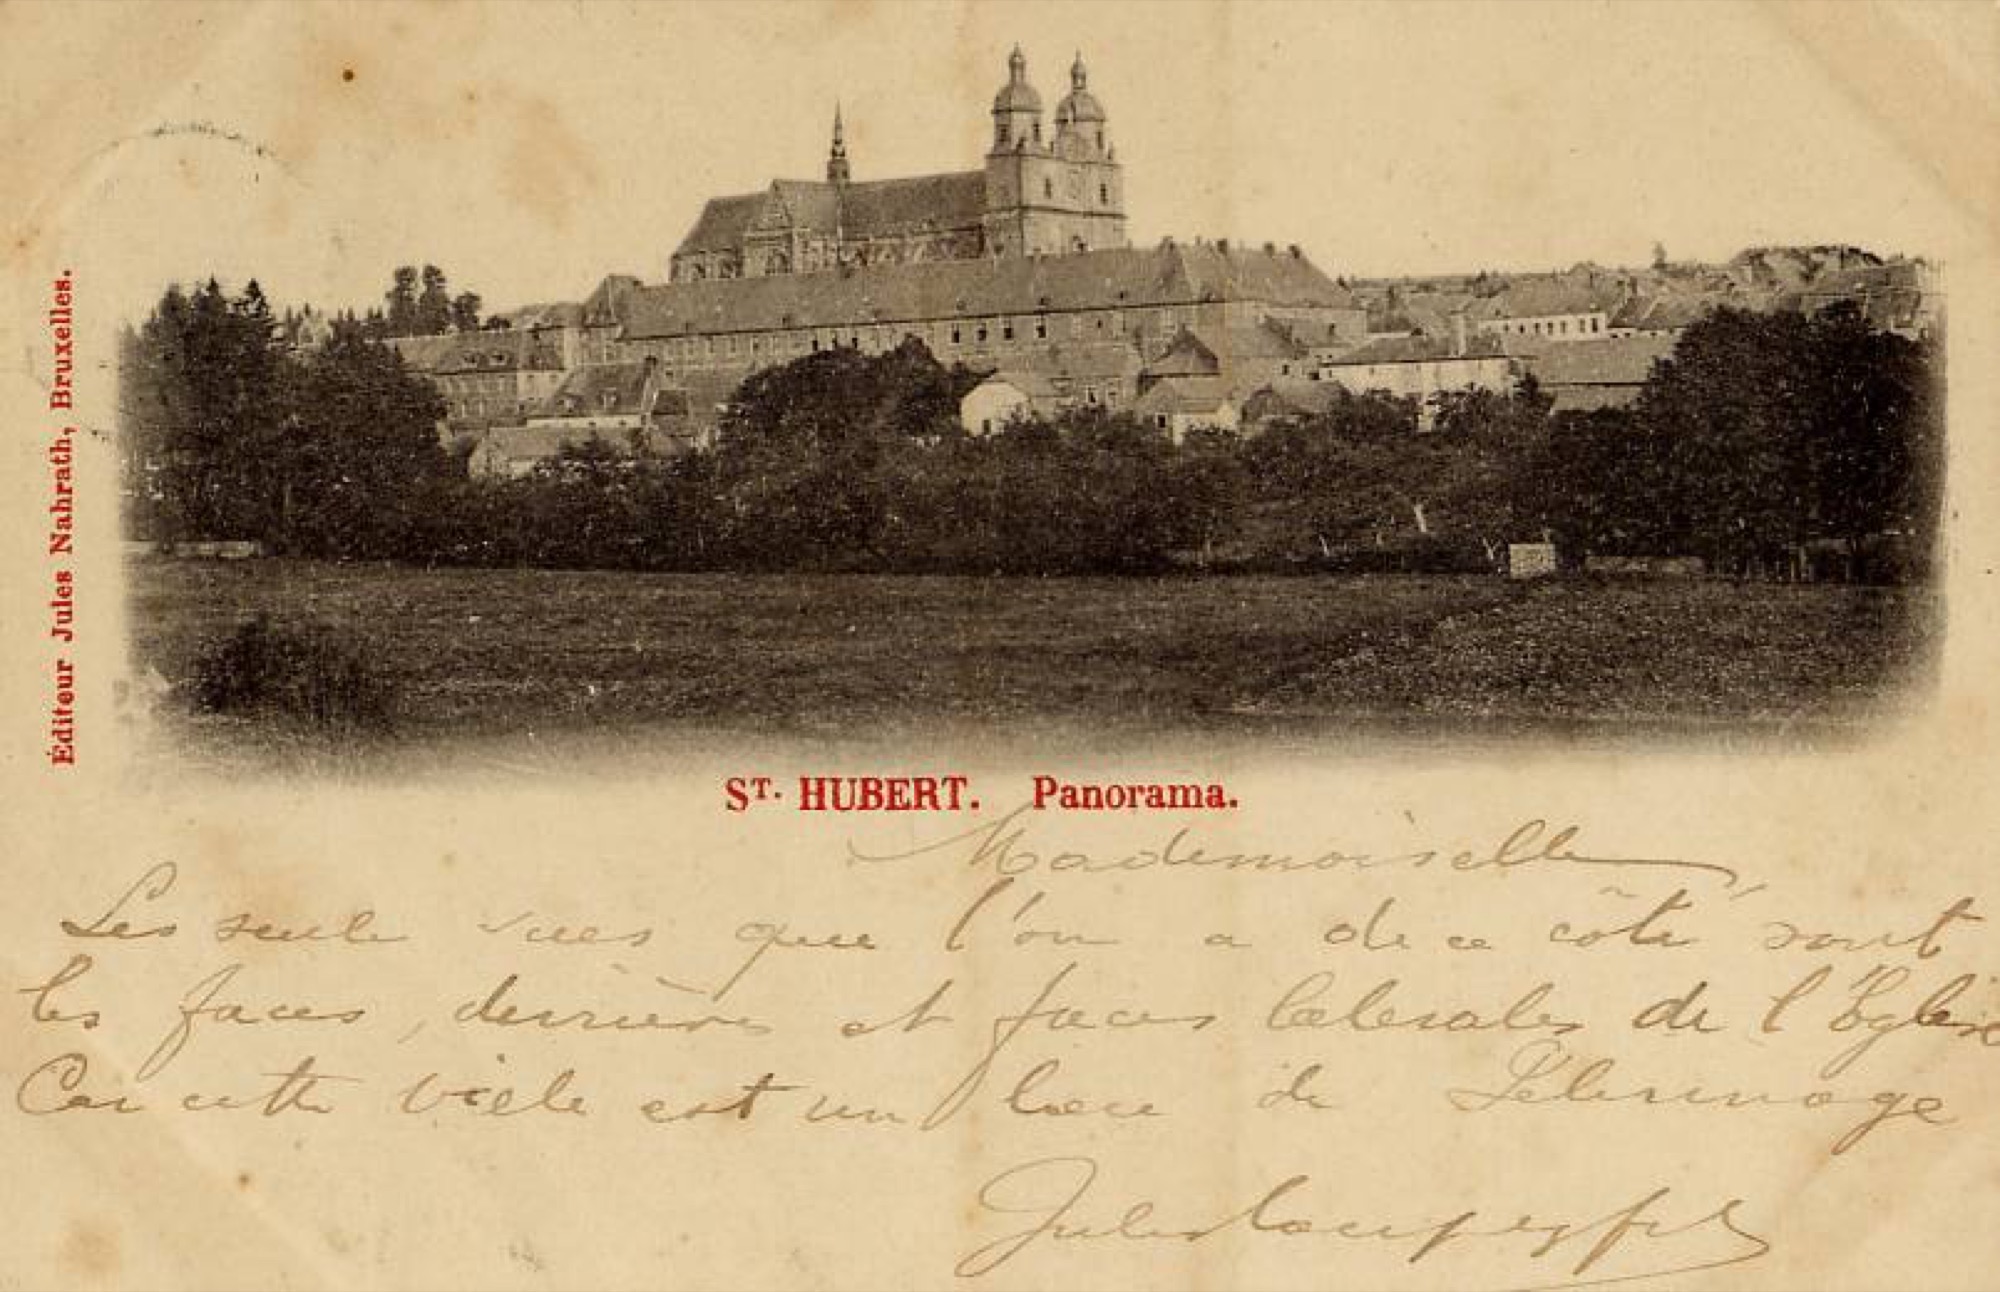 Éditeur Jules Nahrath, Bruxelles.
ST. HUBERT. Panorama.
Mademoiselle,
Les seule vues que l'on a de ce côté sont
les faces, derrières et faces latérales de l'Église
Car cette viele est un lieu de Pélerinage
Jules